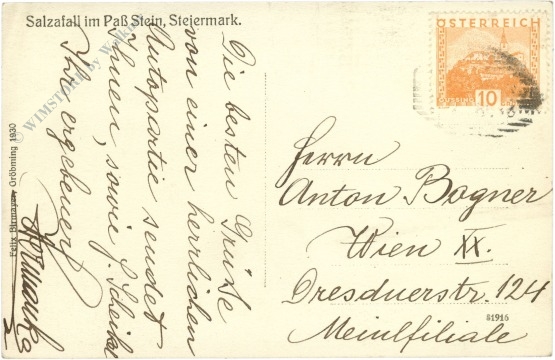 Salzafall im Paß Stein, Steiermark.
Die besten Grüße
von einer herrlichen
Autopartie sendet
Ihnen, sowie f.
Ihr ergebener
Felix Birmaher Gröbming 1930
© WIMSTORY by
ÖSTERREICH
GÜSSING 10
Herrn
Anton Bogner
Wien XX.
Dresdnerstr. 124
Meinlfiliale
81916